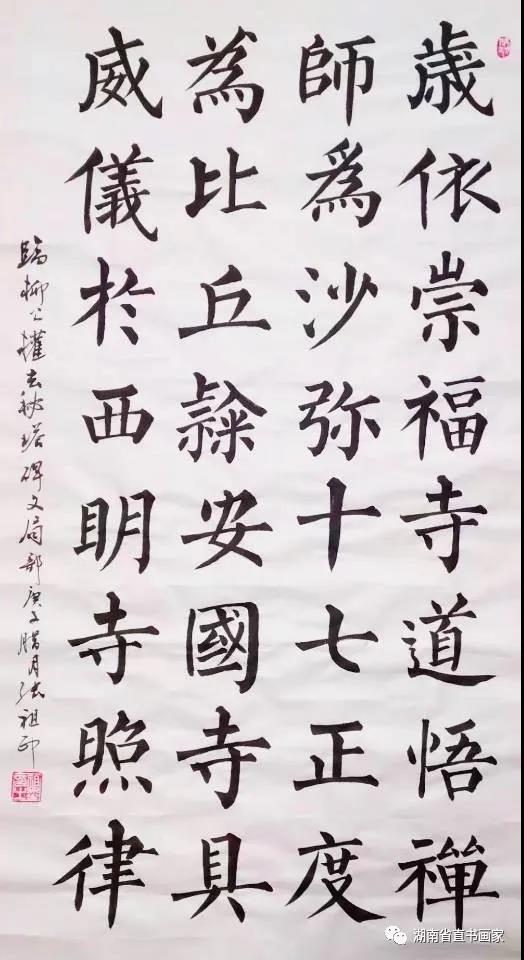 歳依崇福寺道悟禅
師爲沙弥十七正度
為比丘㨽安國寺具
威儀於西明寺照律
臨柳公權玄秘塔碑文局部庚子腊月張祖印
湖南省直书画家